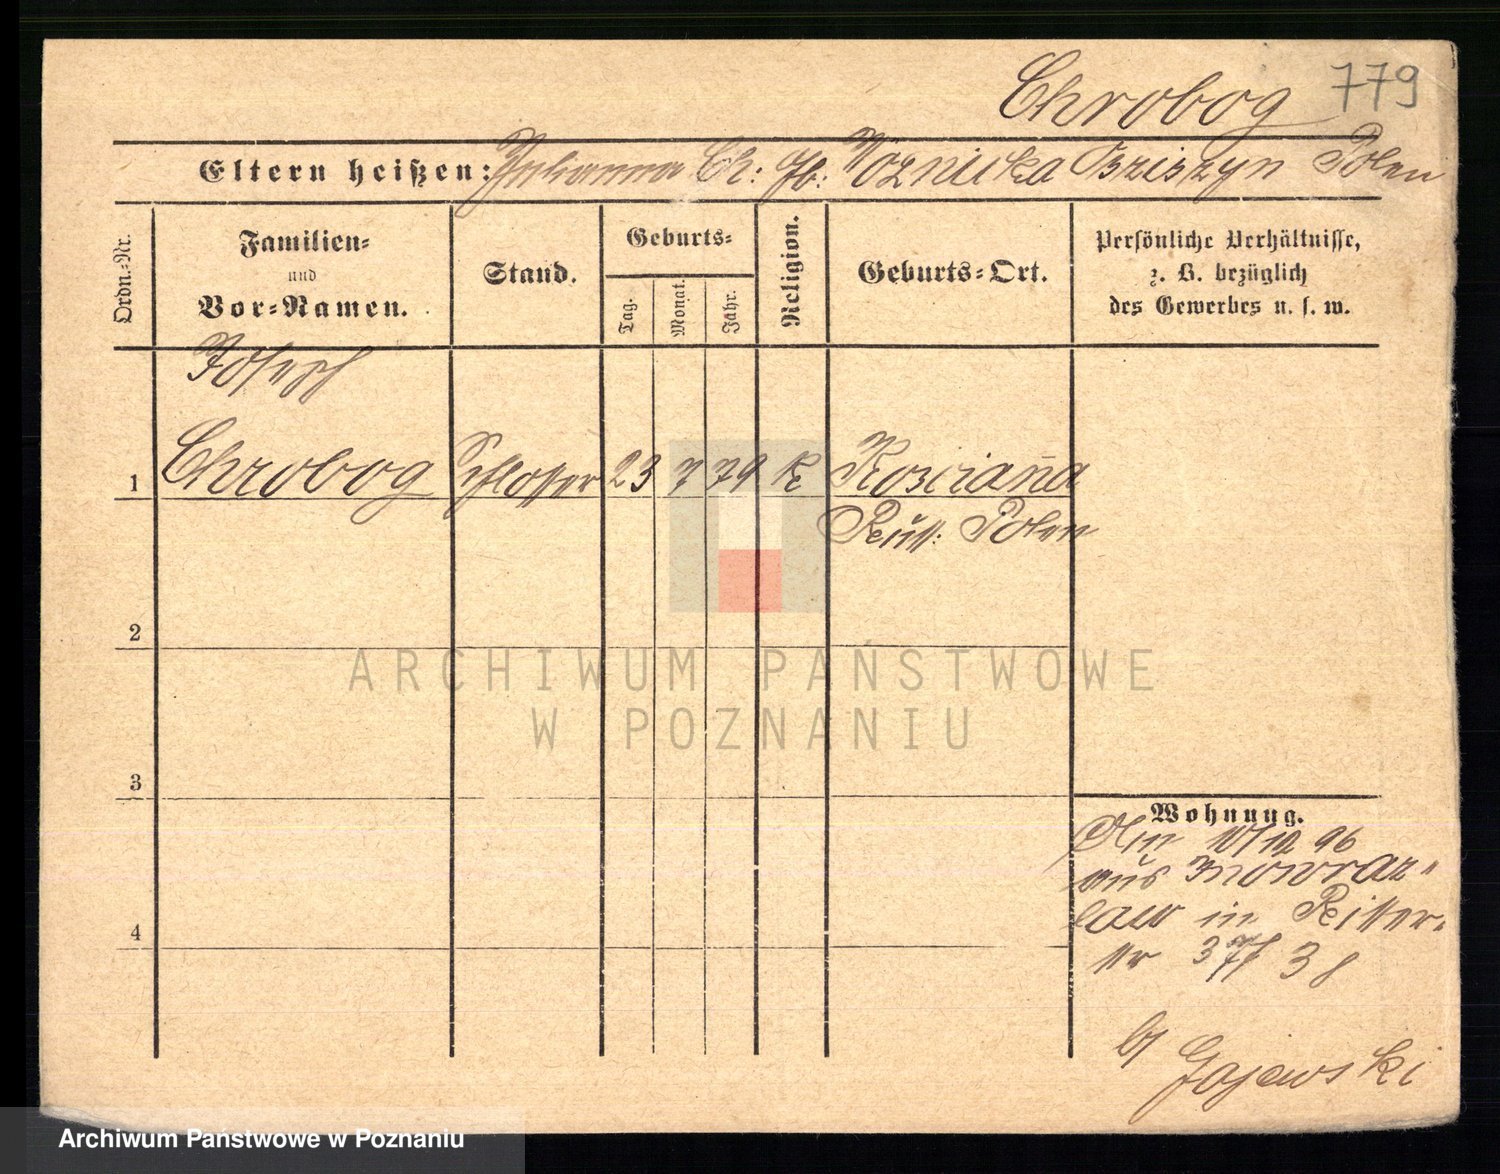 Chrobog 779
Eltern heißen: Johanna Ch: gb: Woznicka Polen
Ordn.-Nr.
Familien-
und
Vor-Namen.
Stand.
Geburts-
Tag.
Monat.
Jahr.
Religion.
Geburts-Ort.
Persönliche Verhältnisse,
z. B. bezüglich
des Gewerbes u. s. w.
Joseph
1 Chrobog Schlosser 23 7 79 K Kosciana
Russ: Polen
2
3
4
Wohnung.
10/12 96
aus Inowraz-
law in Ritter-
str 37
Gajewski
ARCHIWUM PAŃSTWOWE
W POZNANIU
Archiwum Państwowe w Poznaniu